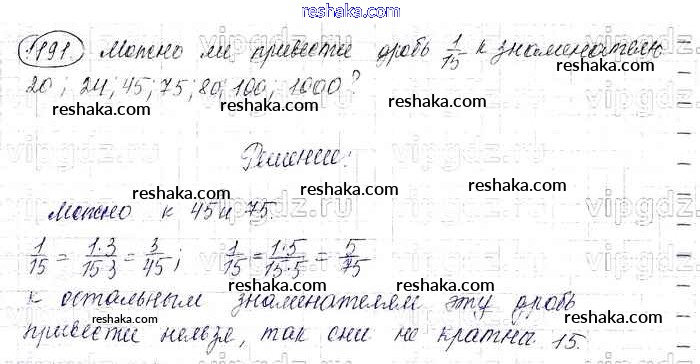 reshaka.com
1191. Можно ли привести дробь 1/15 к знаменателю
20; 24; 45; 75; 80; 100; 1000?
reshaka.com reshaka.com reshaka.com
Решение:
reshaka.com reshaka.com
Можно к 45 и 75.
reshaka.com
1/15 = 1·3/15·3 = 3/45; 1/15 = 1·5/15·5 = 5/75
reshaka.com reshaka.com
к остальным знаменателям эту дробь
привести нельзя, так они не кратны 15.
reshaka.com reshaka.com reshaka.com
vipgdz.ru